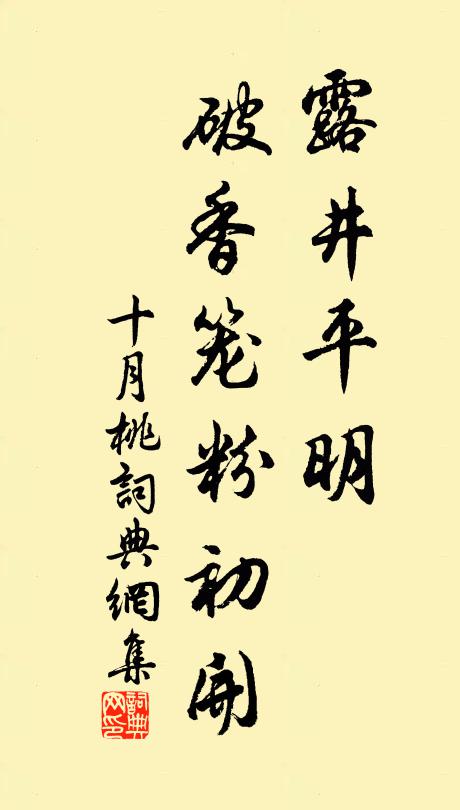 露井平明
破香笼粉初开
十月桃詞典網集
詞典网印